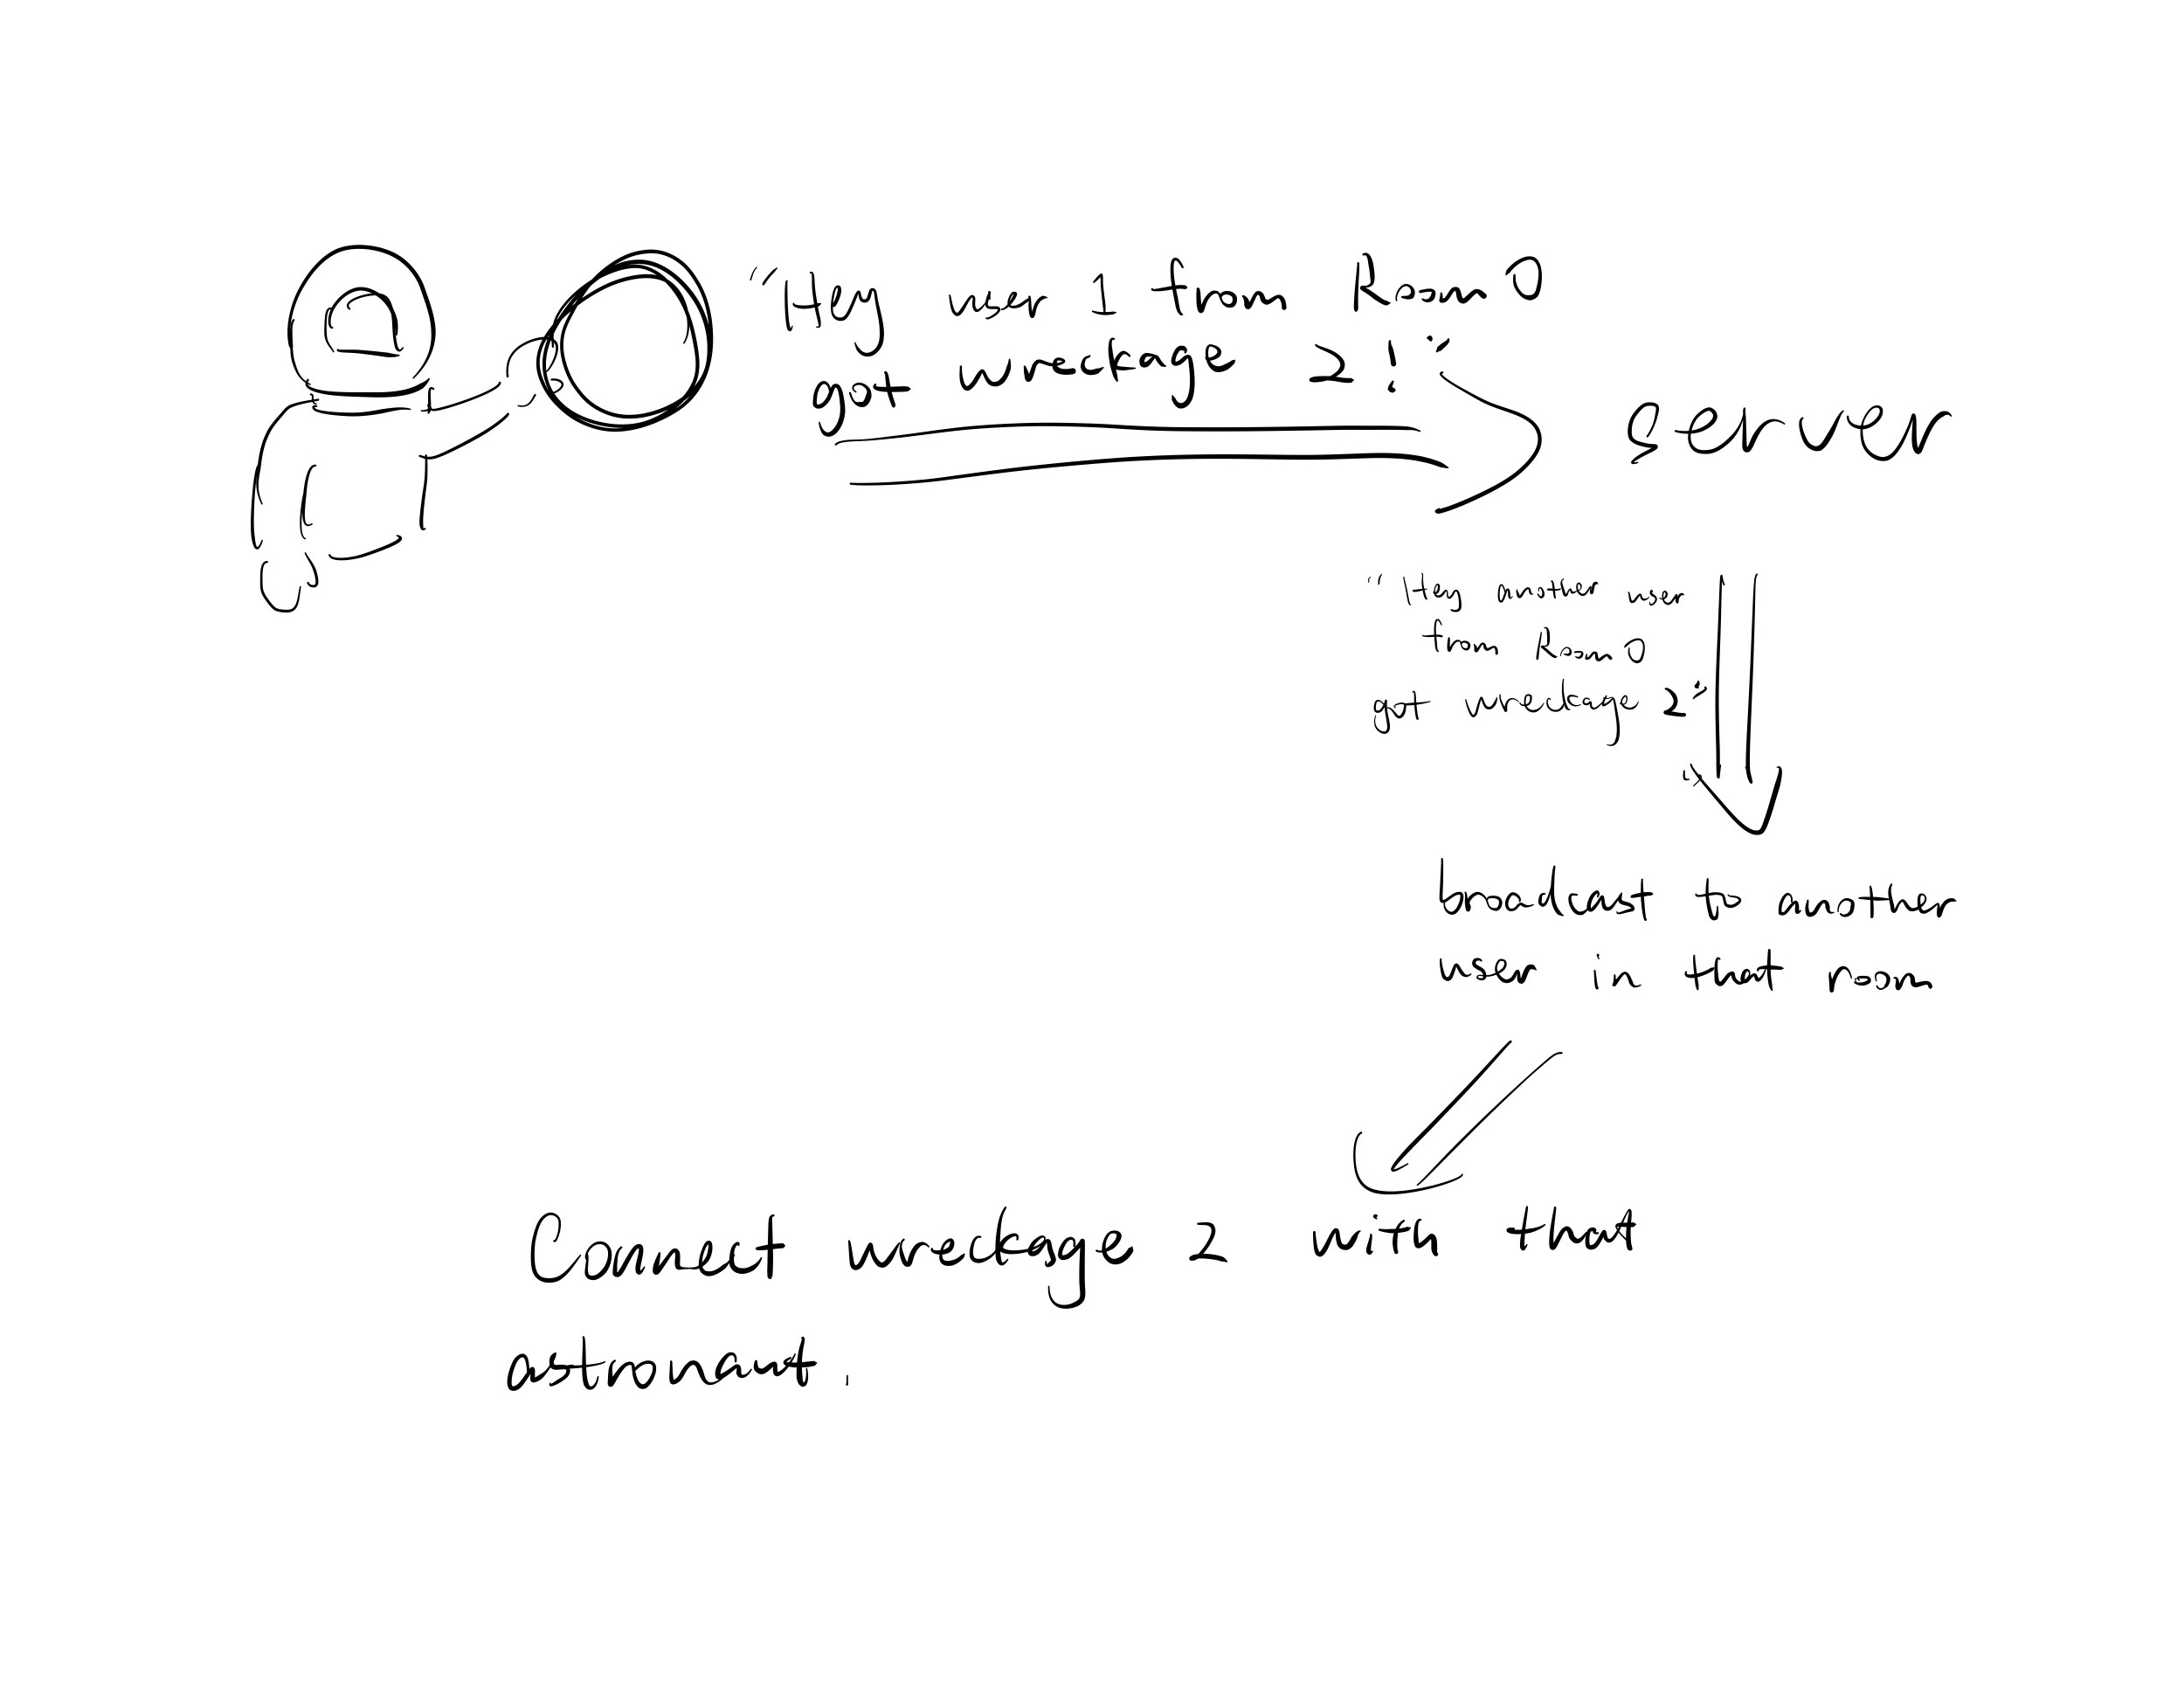 "Hey user 1 from Room 0
got wreckage 2!"
server
"Hey another user
from Room 0
got wreckage 2"
broadcast to another
user in that room
Connect wreckage 2 with that
astronaut.